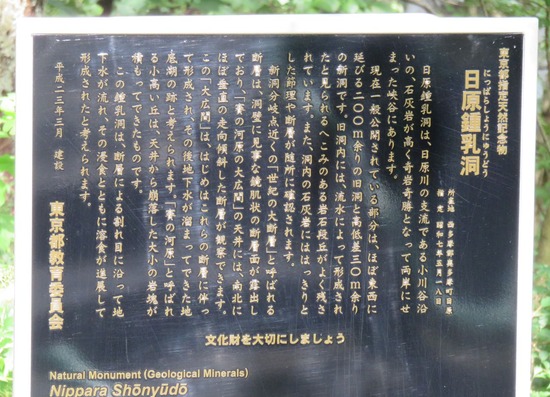 東京都指定天然記念物
にっぱらしょうにゅうどう
日原鍾乳洞
所在地 西多摩郡奥多摩町日原
指定 昭和七年三月一八日
日原鍾乳洞は、日原川の支流である小川谷沿
いの、石灰岩が高く奇岩奇勝となって両岸にせ
まった峡谷にあります。
現在一般公開されている部分は、ほぼ東西に
延びる二〇〇m余りの旧洞と高低差三〇m余り
の新洞です。旧洞内には、流水によって形成され
たと見られるへこみのある岩石段丘がよく残さ
れています。また、洞内の石灰岩にははっきりと
した節理や断層が随所に確認されます。
新洞分岐点近くの「一世紀の大断層」と呼ばれる
断層は、洞壁に見事な鏡肌状の断層面が露出し
ており、「賽の河原の大広間」の天井には、南北に
ほぼ垂直の走向傾斜した断層が観察できます。
この「大広間」は、はじめはこれらの断層に伴っ
て形成され、その後地下水が溜まってできた地
底湖の跡と考えられます。「賽の河原」と呼ばれ
る小高い丘は、天井から崩落した大小の岩塊が
積もってできたものです。
この鍾乳洞は、断層による割れ目に沿って地
下水が流れ、その浸食とともに溶食が進展して
形成されたと考えられます。
平成二三年三月 建設
東京都教育委員会
文化財を大切にしましょう
Natural Monument (Geological Minerals)
Nippara Shōnyūdō